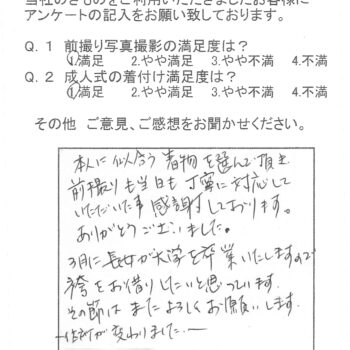 当社のきものをご利用いただきましたお客様に
アンケートの記入をお願い致しております。
Q.1 前撮り写真撮影の満足度は？
1.満足 2.やや満足 3.やや不満 4.不満
Q.2 成人式の着付け満足度は？
1.満足 2.やや満足 3.やや不満 4.不満
その他 ご意見、ご感想をお聞かせください。
本人に似合う着物を選んで頂き
前撮りも当日も丁寧に対応して
いただいた事感謝しております。
ありがとうございました。
3月に長女が大学を卒業いたしますので
袴をお借りしたいと思っています。
その節はまたよろしくお願いします。
―住所が変わりました.―